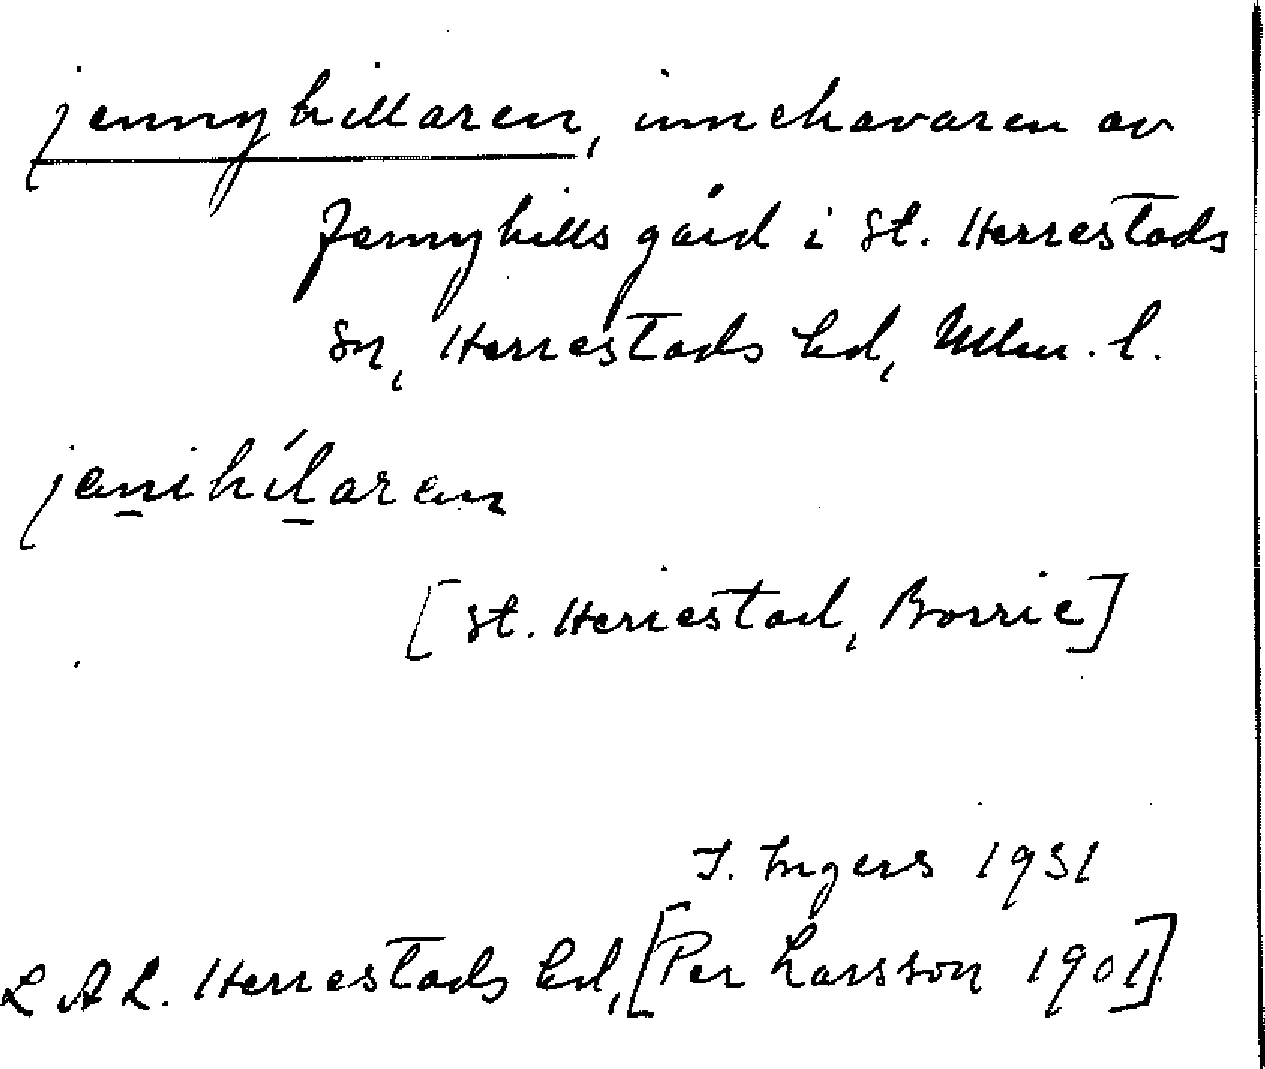 jennyhillaren, innehavaren av
Jennyhills gård i St. Herrestads
Sn, Herrestads hd, Mlm. l.
jenihílaren
[St. Herrestad, Borrie]
I. Ingers 1931
LAL. Herrestads hd, [Per Larsson 1901]